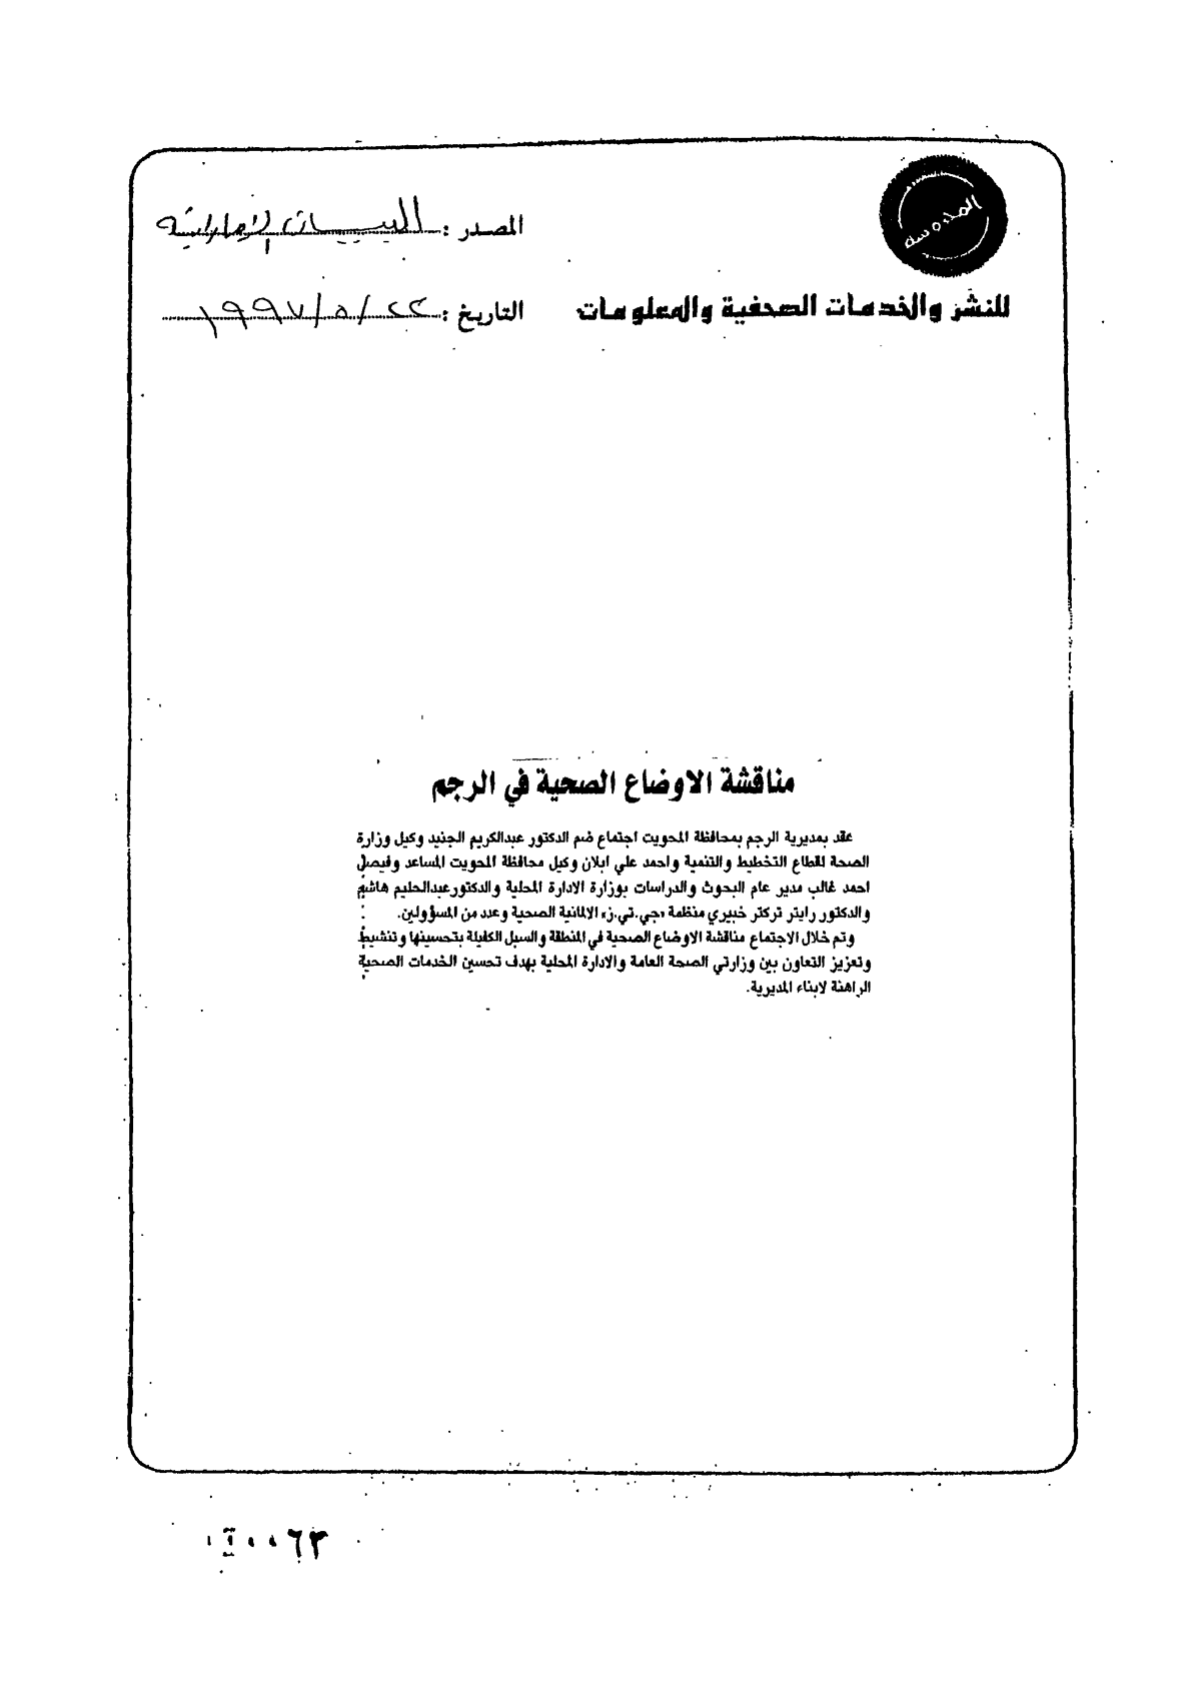 المصدر : البيان الإماراتية
للنشر والخدمات الصحفية والمعلومات
التاريخ : ٢٢ / ٥ / ١٩٩٧
مناقشة الاوضاع الصحية في الرجم
عقد بمديرية الرجم بمحافظة المحويت اجتماع ضم الدكتور عبدالكريم الجنيد وكيل وزارة
الصحة لقطاع التخطيط والتنمية واحمد علي ابلان وكيل محافظة المحويت المساعد وفيصل
احمد غالب مدير عام البحوث والدراسات بوزارة الادارة المحلية والدكتور عبدالحليم هاشم
والدكتور رايتر تركتر خبيري منظمة «جي.تي.ز» الالمانية الصحية وعدد من المسؤولين.
وتم خلال الاجتماع مناقشة الاوضاع الصحية في المنطقة والسبل الكفيلة بتحسينها وتنشيط
وتعزيز التعاون بين وزارتي الصحة العامة والادارة المحلية بهدف تحسين الخدمات الصحية
الراهنة لابناء المديرية.